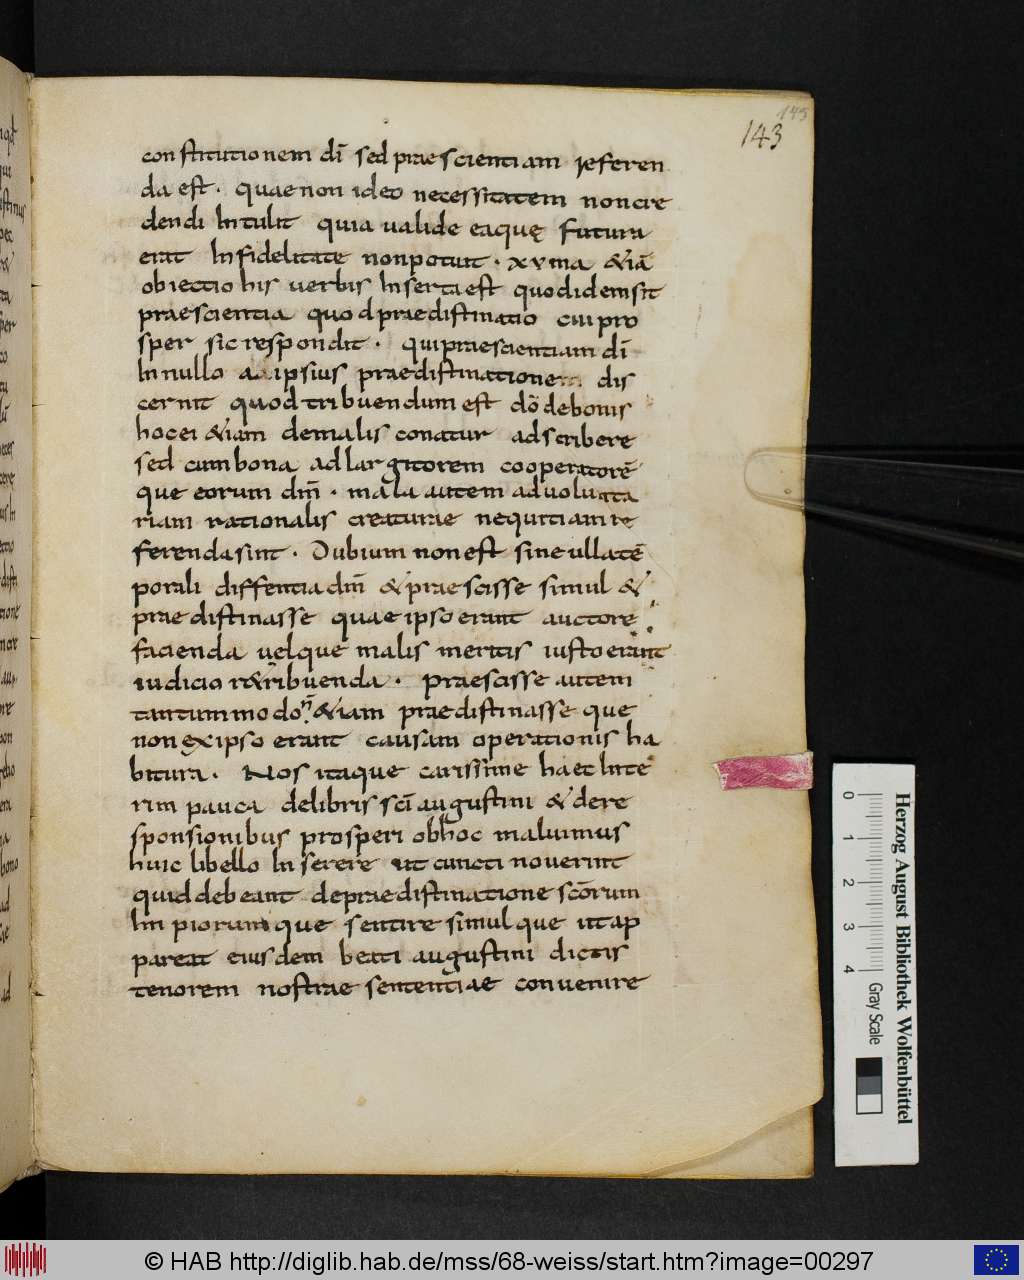 143
143
constitutionem dī sed praescientiam referen
da est. quae non ideo necessitatem non cre
dendi Intulit quia ualide ea quę futura
erat Infidelitate non potuit. xvma &iā
obiectio his uerbis Inserta est quod idem sit
praescientia quod praedistinatio cui pro
sper sic respondit. qui praescientiam dī
In nullo a ipsius praedistinatione dis
cernit quod tribuendum est dō de bonis
hoc ei &iam de malis conatur adscribere
sed cum bona ad largitorem cooperatorē
que eorum dm̄. mala autem ad volunta
riam rationalis creaturae nequitiam re
ferenda sint. Dubium non est sine ulla tē
porali diffentia dm̄ & praescisse simul &
praedistinasse quae ipso erant auctore
facienda uel que malis meritis iusto erant
iudicio r&ribuenda. Praescisse autem
tantummodo n̄ &iam praedistinasse que
non ex ipso erant causam operationis ha
bitura. Nos itaque carissime haec Inte
rim pauca de libris scī augustini & de re
sponsionibus prosperi ob hoc maluimus
huic libello Inserere ut cuncti nouerint
quid debeant de praedistinatione scōrum
Impiorumque sentire simulque ut ap
pareat eiusdem beati augustini dictis
tenorem nostrae sententiae conuenire
0 1 2 3 4
Gray Scale
Herzog August Bibliothek Wolfenbüttel
© HAB http://diglib.hab.de/mss/68-weiss/start.htm?image=00297